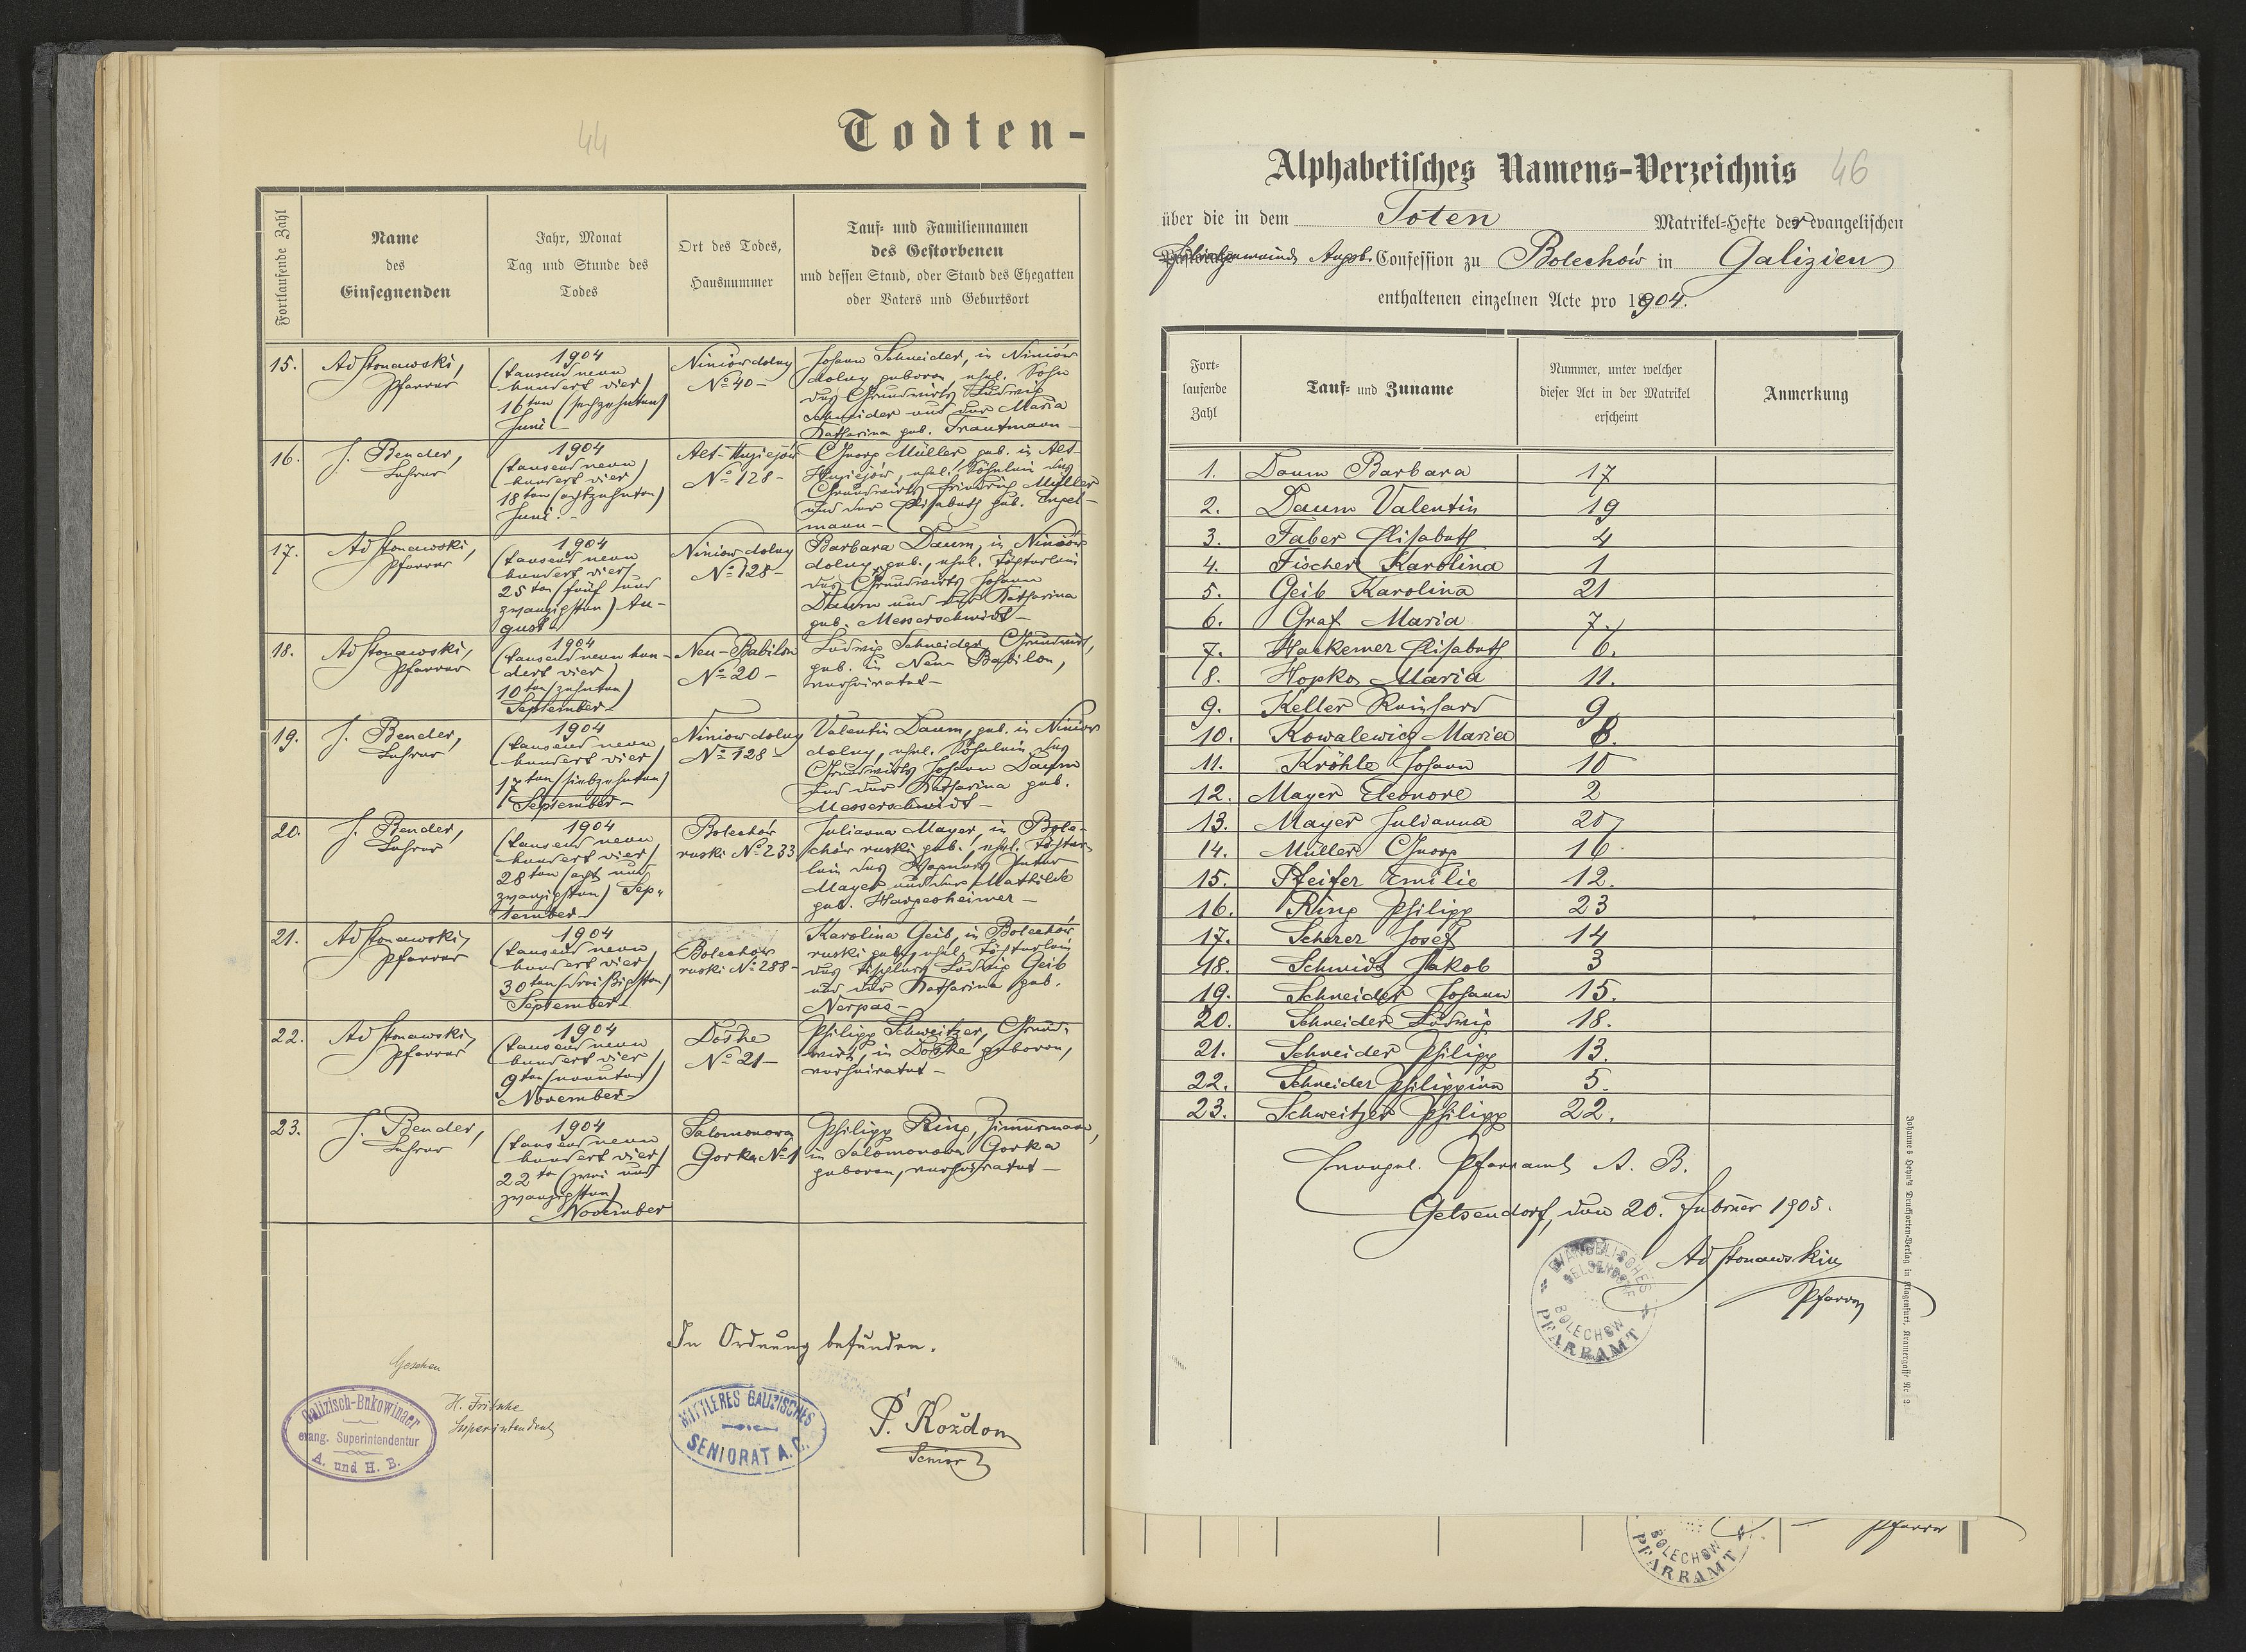 44
Todten-
Fortlaufende Zahl
Name
des
Einsegnenden
Jahr, Monat
Tag und Stunde des
Todes
Ort des Todes,
Hausnummer
Tauf- und Familiennamen
des Gestorbenen
und dessen Stand, oder Stand des Ehegatten
oder Vaters und Geburtsort
15.
Ad Stonawski,
Pfarrer
1904
(tausend neun
hundert vier)
16ten (sechzehnten)
Juni
Niniow dolny
No 40 -
Johann Schneider, in Niniów
dolny geboren, ehel. Sohn
des Grundwirts Ludwig
Schneider und der Maria
Katharina geb. Trautmann -
16.
J. Bender,
Lehrer
1904
(tausend neun
hundert vier)
18ten (achtzehnten)
Juni. -
Alt-Hujiejów
No 128 -
Georg Müller, geb. in Alt-
Hujiejów, ehel. Söhnlein des
Grundwirts Friedrich Müller
und der Elisabeth geb. Engel-
mann -
17.
Ad Stonawski,
Pfarrer
1904
(tausend neun
hundert vier)
25ten (fünf und
zwanzigsten) Au-
gust -
Niniow dolny
No 128 -
Barbara Daum, in Niniów
dolny geb., ehel. Töchterlein
des Grundwirts Johann
Daum und der Katharina
geb. Messerschmidt -
18.
Ad Stonawski,
Pfarrer
1904
(tausend neun hun-
dert vier)
10ten (zehnten)
September -
Neu-Babilon
No 20 -
Ludwig Schneider, Grundwirt,
geb. in Neu-Babilon,
verheiratet -
19.
J. Bender,
Lehrer
1904
(tausend neun
hundert vier)
17ten (siebzehnten)
September -
Niniow dolny
No 128 -
Valentin Daum, geb. in Niniow
dolny, ehel. Söhnlein des
Grundwirts Johann Daum
und der Katharina geb.
Messerschmidt -
20.
J. Bender,
Lehrer
1904
(tausend neun
hundert vier)
28ten (acht und
zwanzigsten) Sep-
tember -
Bolechów
ruski No 233
Julianna Mayer, in Bole-
chów ruski geb., ehel. Töchter-
lein des Wagners Peter
Mayer und der Mathilde
geb. Hargesheimer -
21.
Ad Stonawski,
Pfarrer
1904
(tausend neun
hundert vier)
30ten (dreißigsten)
September -
Bolechów
ruski No 288 -
Karolina Geib, in Bolechów
ruski geb., ehel. Töchterlein
des Tischlers Ludwig Geib
und der Katharina geb.
Nerpas -
22.
Ad Stonawski,
Pfarrer
1904
(tausend neun
hundert vier)
9ten (neunten)
November -
Doshe
No 21 -
Philipp Schweitzer, Grund-
wirt, in Doshe geboren,
verheiratet -
23.
J. Bender,
Lehrer
1904
(tausend neun
hundert vier)
22ten (zwei und
zwanzigsten)
November
Salomonowa
Gorka No 1
Philipp Ring, Zimmermann,
in Salomonowa Gorka
geboren, verheiratet -
In Ordnung befunden.
Gesehen
H. Fritsche
Superintendent
Galizisch-Bukowinaer
evang. Superintendentur
A. und H. B.
MITTLERES GALIZISCHES
SENIORAT A. C.
P. Kożdon
Senior
46
Alphabetisches Namens-Verzeichnis
über die in dem Toten Matrikel-Hefte der evangelischen
Filialgemeinde Augsb. Confession zu Bolechów in Galizien
enthaltenen einzelnen Acte pro 1904.
Fort-
laufende
Zahl
Tauf- und Zuname
Nummer, unter welcher
dieser Act in der Matrikel
erscheint
Anmerkung
1. Daum Barbara 17
2. Daum Valentin 19
3. Faber Elisabeth 4
4. Fischer Karolina 1
5. Geib Karolina 21
6. Graf Maria 7.
7. Hackemer Elisabeth 6.
8. Hopko Maria 11.
9. Keller Reinhard 9
10. Kowalewicz Maria 8.
11. Kröhle Johann 10
12. Mayer Eleonore 2
13. Mayer Julianna 20
14. Müller Georg 16
15. Pfeifer Emilie 12.
16. Ring Philipp 23
17. Scherer Josef 14
18. Schmidt Jakob 3
19. Schneider Johann 15.
20. Schneider Ludwig 18.
21. Schneider Philipp 13.
22. Schneider Philippina 5.
23. Schweitzer Philipp 22.
Evangel. Pfarramt A. B.
Gelsendorf, den 20. Februar 1905.
Ad Stonawski
Pfarrer
EVANGELISCHES
GELSENDORF
BOLECHOW
PFARRAMT
Johannes Heyn's Drucksorten-Verlag in Klagenfurt, Kramergasse Nr. 2.
BOLECHOW
PFARRAMT
Pfarrer